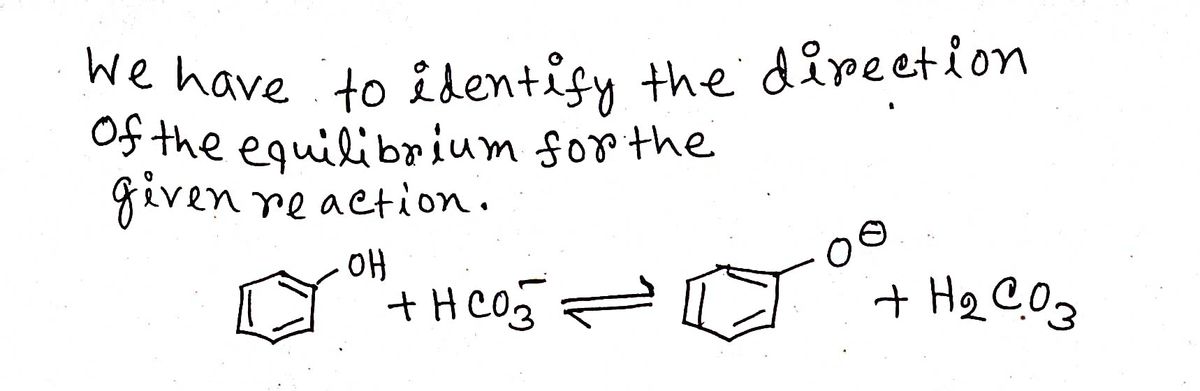 We have to identify the direction
Of the equilibrium for the
given reaction.
OH + HCO₃⁻ ⇌ O⊖ + H₂CO₃